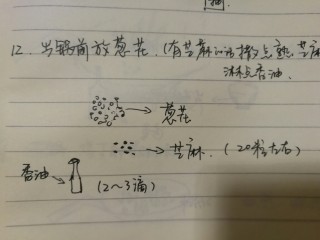 12. 出锅前放葱花.(有芝麻的话撒点熟芝麻
淋点香油.
葱花
芝麻.(20粒左右)
香油
(2~3滴)